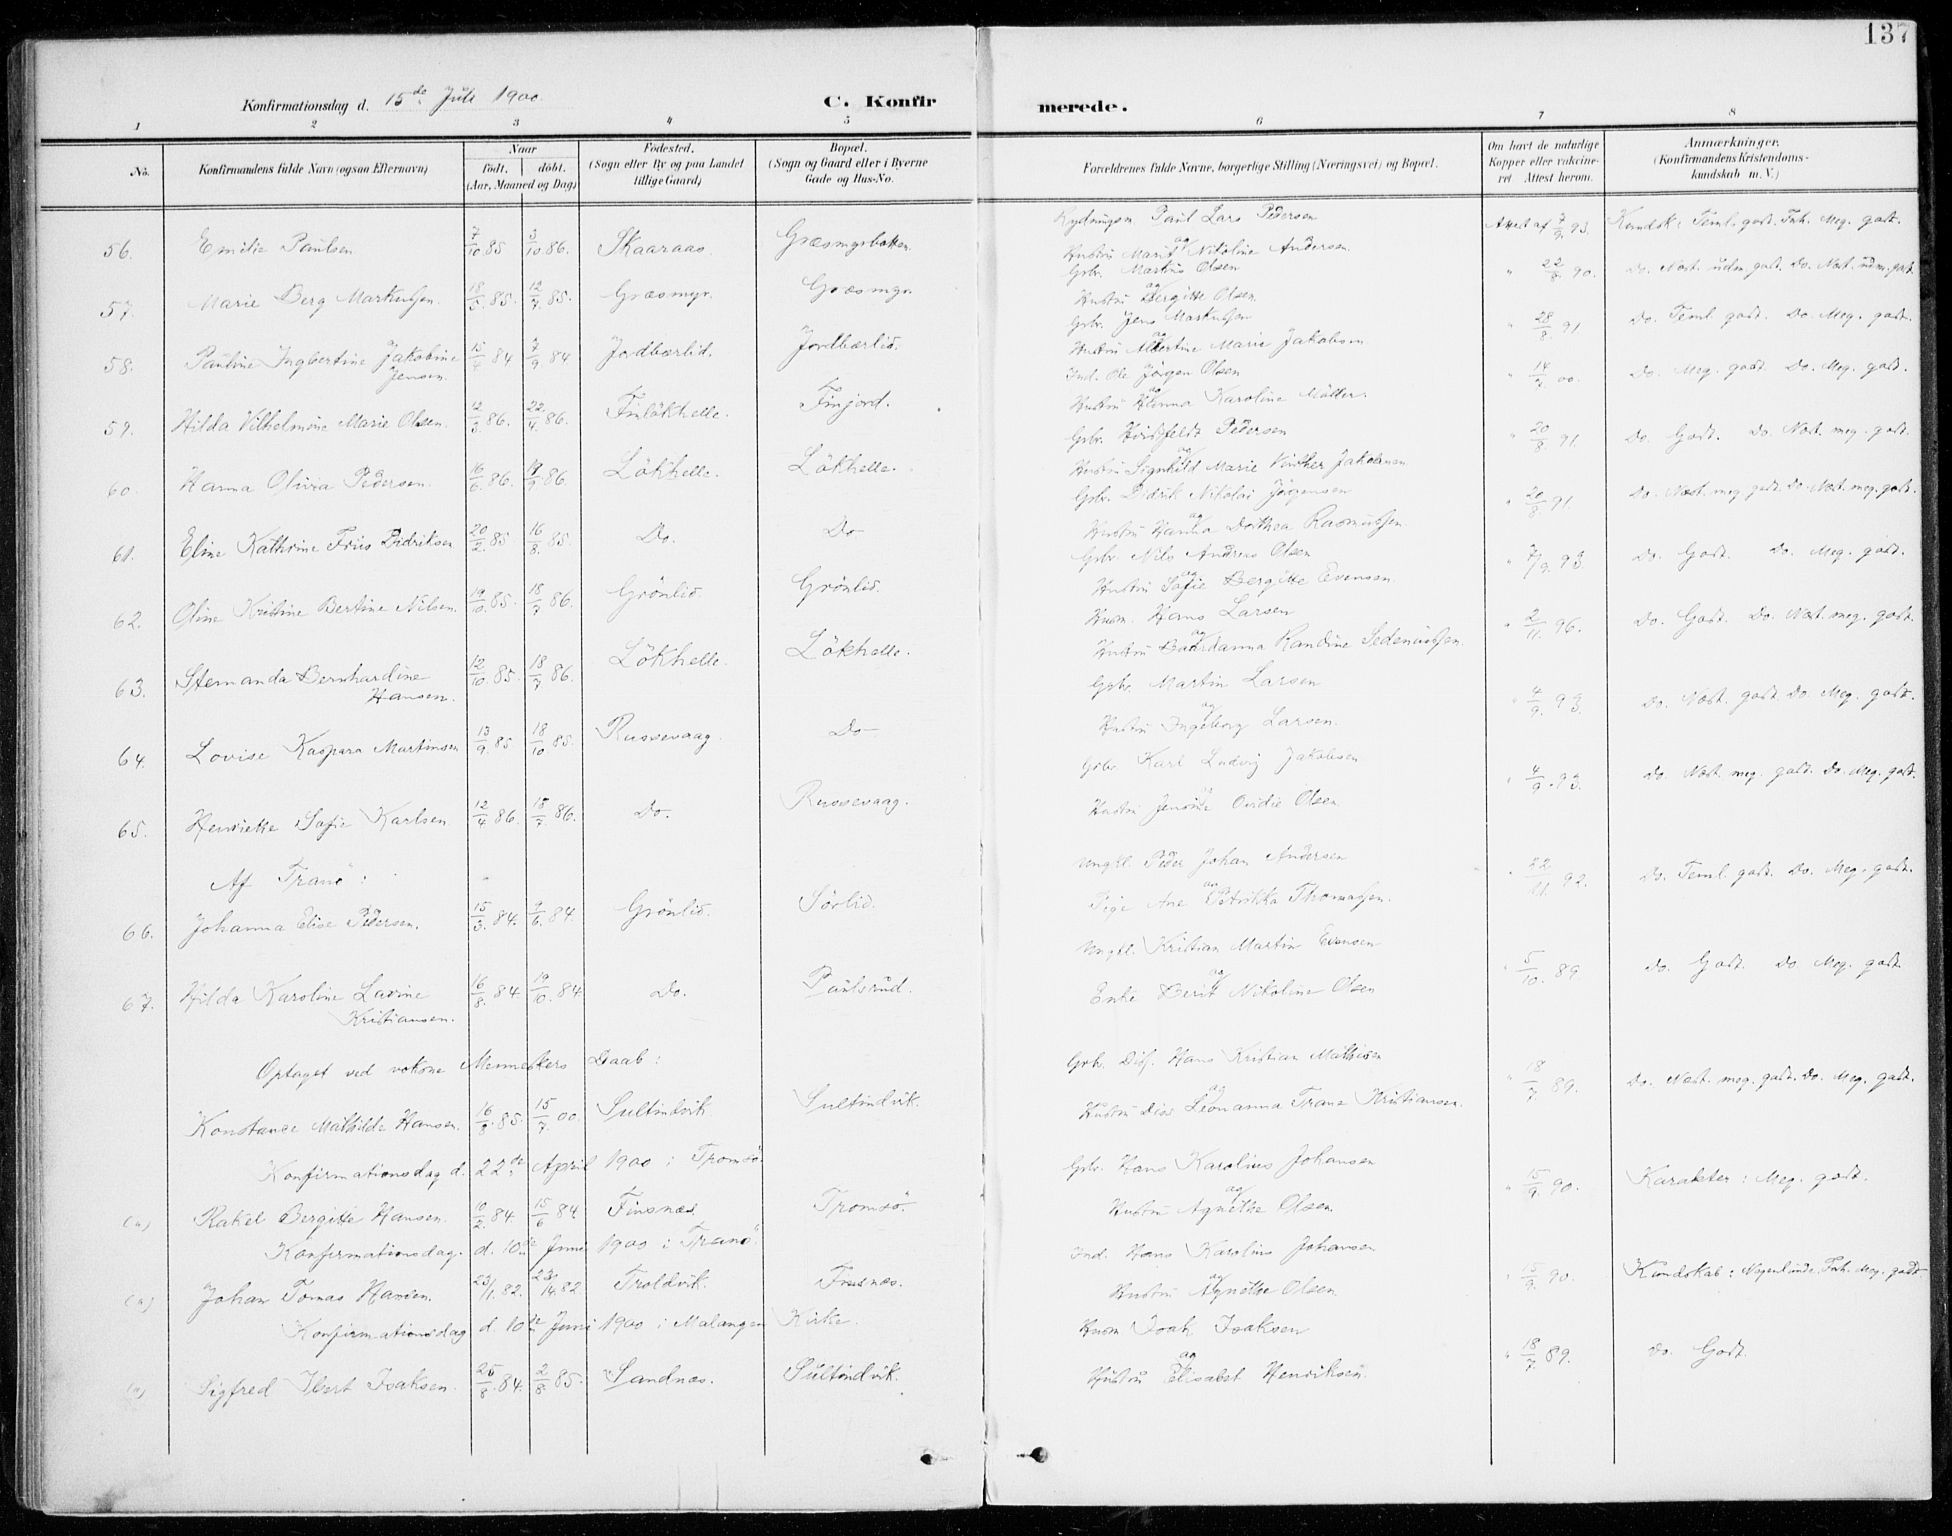 137
Konfirmationsdag d. 15de Juli 1900.
C. Konfirmerede.
1 2 3 4 5 6 7 8
No. Konfirmandens fulde Navn (ogsaa Efternavn) Naar født. døbt. (Aar, Maaned og Dag) Fødested. (Sogn eller By og paa Landet tillige Gaard) Bopæl. (Sogn og Gaard eller i Byerne Gade og Hus-No. Forældrenes fulde Navne, borgerlige Stilling (Næringsvei) og Bopæl. Om havt de naturlige Kopper eller vakcineret. Attest herom. Anmærkninger. (Konfirmandens Kristendomskundskab m. V.)
Rydningsm. Paul Lars Pedersen
56. Emilie Paulsen 7/10 85 3/10 86. Skaaraas. Græsmyrbakken. og Hustru Marit Nikoline Andersen. Attest af 7/9 93. Kundsk: Teml. godt. Fnh. Meg. godt.
Grbr. Martus Olsen
57. Marie Berg Markussen. 18/3 85. 12/7 85. Græsmyr. Græsmyr. og Hustru Bergitte Olsen. " 22/8 90. Do. Næst. udm. godt. Do. Næst. udm. godt.
Grbr. Jens Markussen
58. Pauline Ingbertine Jakobine Jensen. 7/9 84 Jordbærlid. Jordbærlid. og Hustru Albertine Marie Jakobsen " 28/8 91 Do. Teml. godt. Do. Meg. godt.
Ind. Ole Jørgen Olsen
59. Hilda Vilhelmine Marie Olsen. 12/3 86. 22/4 86. Finløkhelle. Finjord. og Hustru Hanna Karoline Møller. " 14/7 00. Do. Meg. godt. Do. Meg. godt.
Grbr. Hvidtfeldt Pedersen
60. Hanna Olivia Pedersen. 16/6 86. 86 Løkhelle. Løkhelle. og Hustru Signhild Marie Vinther Jakobsen " 20/8 91. Do. Godt. Do. Næst. meg. godt.
Grbr. Didrik Nikolai Jørgensen
61. Eline Kathrine Friis Didriksen 20/2 85 16/8 85. Do. Do og Hustru Hanna Dorthea Rasmussen " 20/8 91. Do. Næst. meg. godt. Do. Næst. meg. godt.
Grbr. Nils Andreas Olsen
62. Oline Kristine Bertine Nilsen. 19/10 85. 18/7 86. Grønlid. Grønlid. og Hustru Sofie Bergitte Evensen. " 7/9 93. Do. Godt. Do. Meg. godt.
Husm. Hans Larsen
63. Stemanda Bernhardine Hansen. 12/10 85. 18/7 86. Løkhelle. Løkhelle. og Hustru Randine Sedeniussen. " 2/11 96. Do. Godt. Do. Næst. meg. godt.
Grbr. Martin Larsen
64. Lovise Kaspara Martinsen 13/9 85 18/10 85. Russevaag. Do og Hustru Ingeborg Larsen. " 4/9 93. Do. Næst. godt. Do. Meg. godt.
Grbr. Karl Ludvig Jakobsen
65. Henriette Sofie Karlsen 12/4 86. 18/7 86. Do. Russevaag. Hustru Jensine Ovidie Olsen. " 4/9 93. Do. Næst. meg. godt. Do. Meg. godt.
Af Tranø:
Ungkl. Peder Johan Andersen
66. Johanna Elise Pedersen. 15/3 84. 9/6 84. Grønlid. Sørlid. og Pige Ane Petrikka Thomassen. " 22/11 92. Do. Teml. godt. Do. Meg. godt.
Ungkl. Kristian Martin Evensen
67. Hilda Karoline Lavine Kristiansen. 16/8 84 19/10 84 Do. Paulsrud. og Enke Berit Nikoline Olsen " 5/10 89 Do. Godt. Do Meg. godt.
Optaget ved voksne Menneskers Daab:
Grbr. Diss. Hans Kristian Mathisen
Konstance Mathilde Hansen. 16/8 85. 15/7 00. Sultindvik Sultindvik. og Hustru Diss Leonanna Trane Kristiansen. " 18/7 89. Do. Næst. meg. godt. Do. Meg. godt.
Konfirmationsdag d. 22de April 1900 i Tromsø.
Grbr. Hans Karolius Johansen
(a) Rakel Bergitte Hansen. 10/2 84 15/6 84 Finsnæs Tromsø. og Hustru Agnethe Olsen. " 15/9 90. Karakter: Meg. godt.
Konfirmationsdag. d. 10de Juni 1900 i Tranø
Ind. Hans Karolius Johansen
(a) Johan Tomas Hansen. 23/1 82. 82 Troldvik. Finsnæs. og Hustru Agnethe Olsen. " 15/9 90. Kundskab: Nogenlunde. Fnh. Meg. godt
Konfirmationsdag d. 10de Juni 1900 i Malangen Kirke.
Husm Isak Isaksen
(a) Sigfred Ibert Isaksen. 25/8 84. 2/8 85. Sandnæs. Sultindvik. og Hustru Elisabet Henriksen. " 18/7 89. Do. Godt.